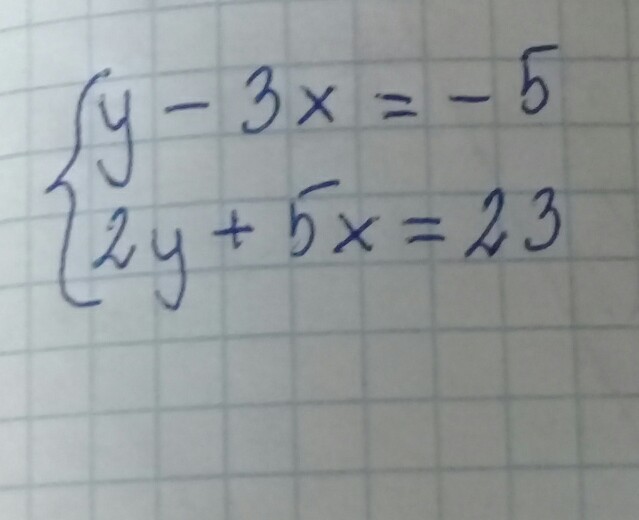 y - 3x = - 5
2y + 5x = 23